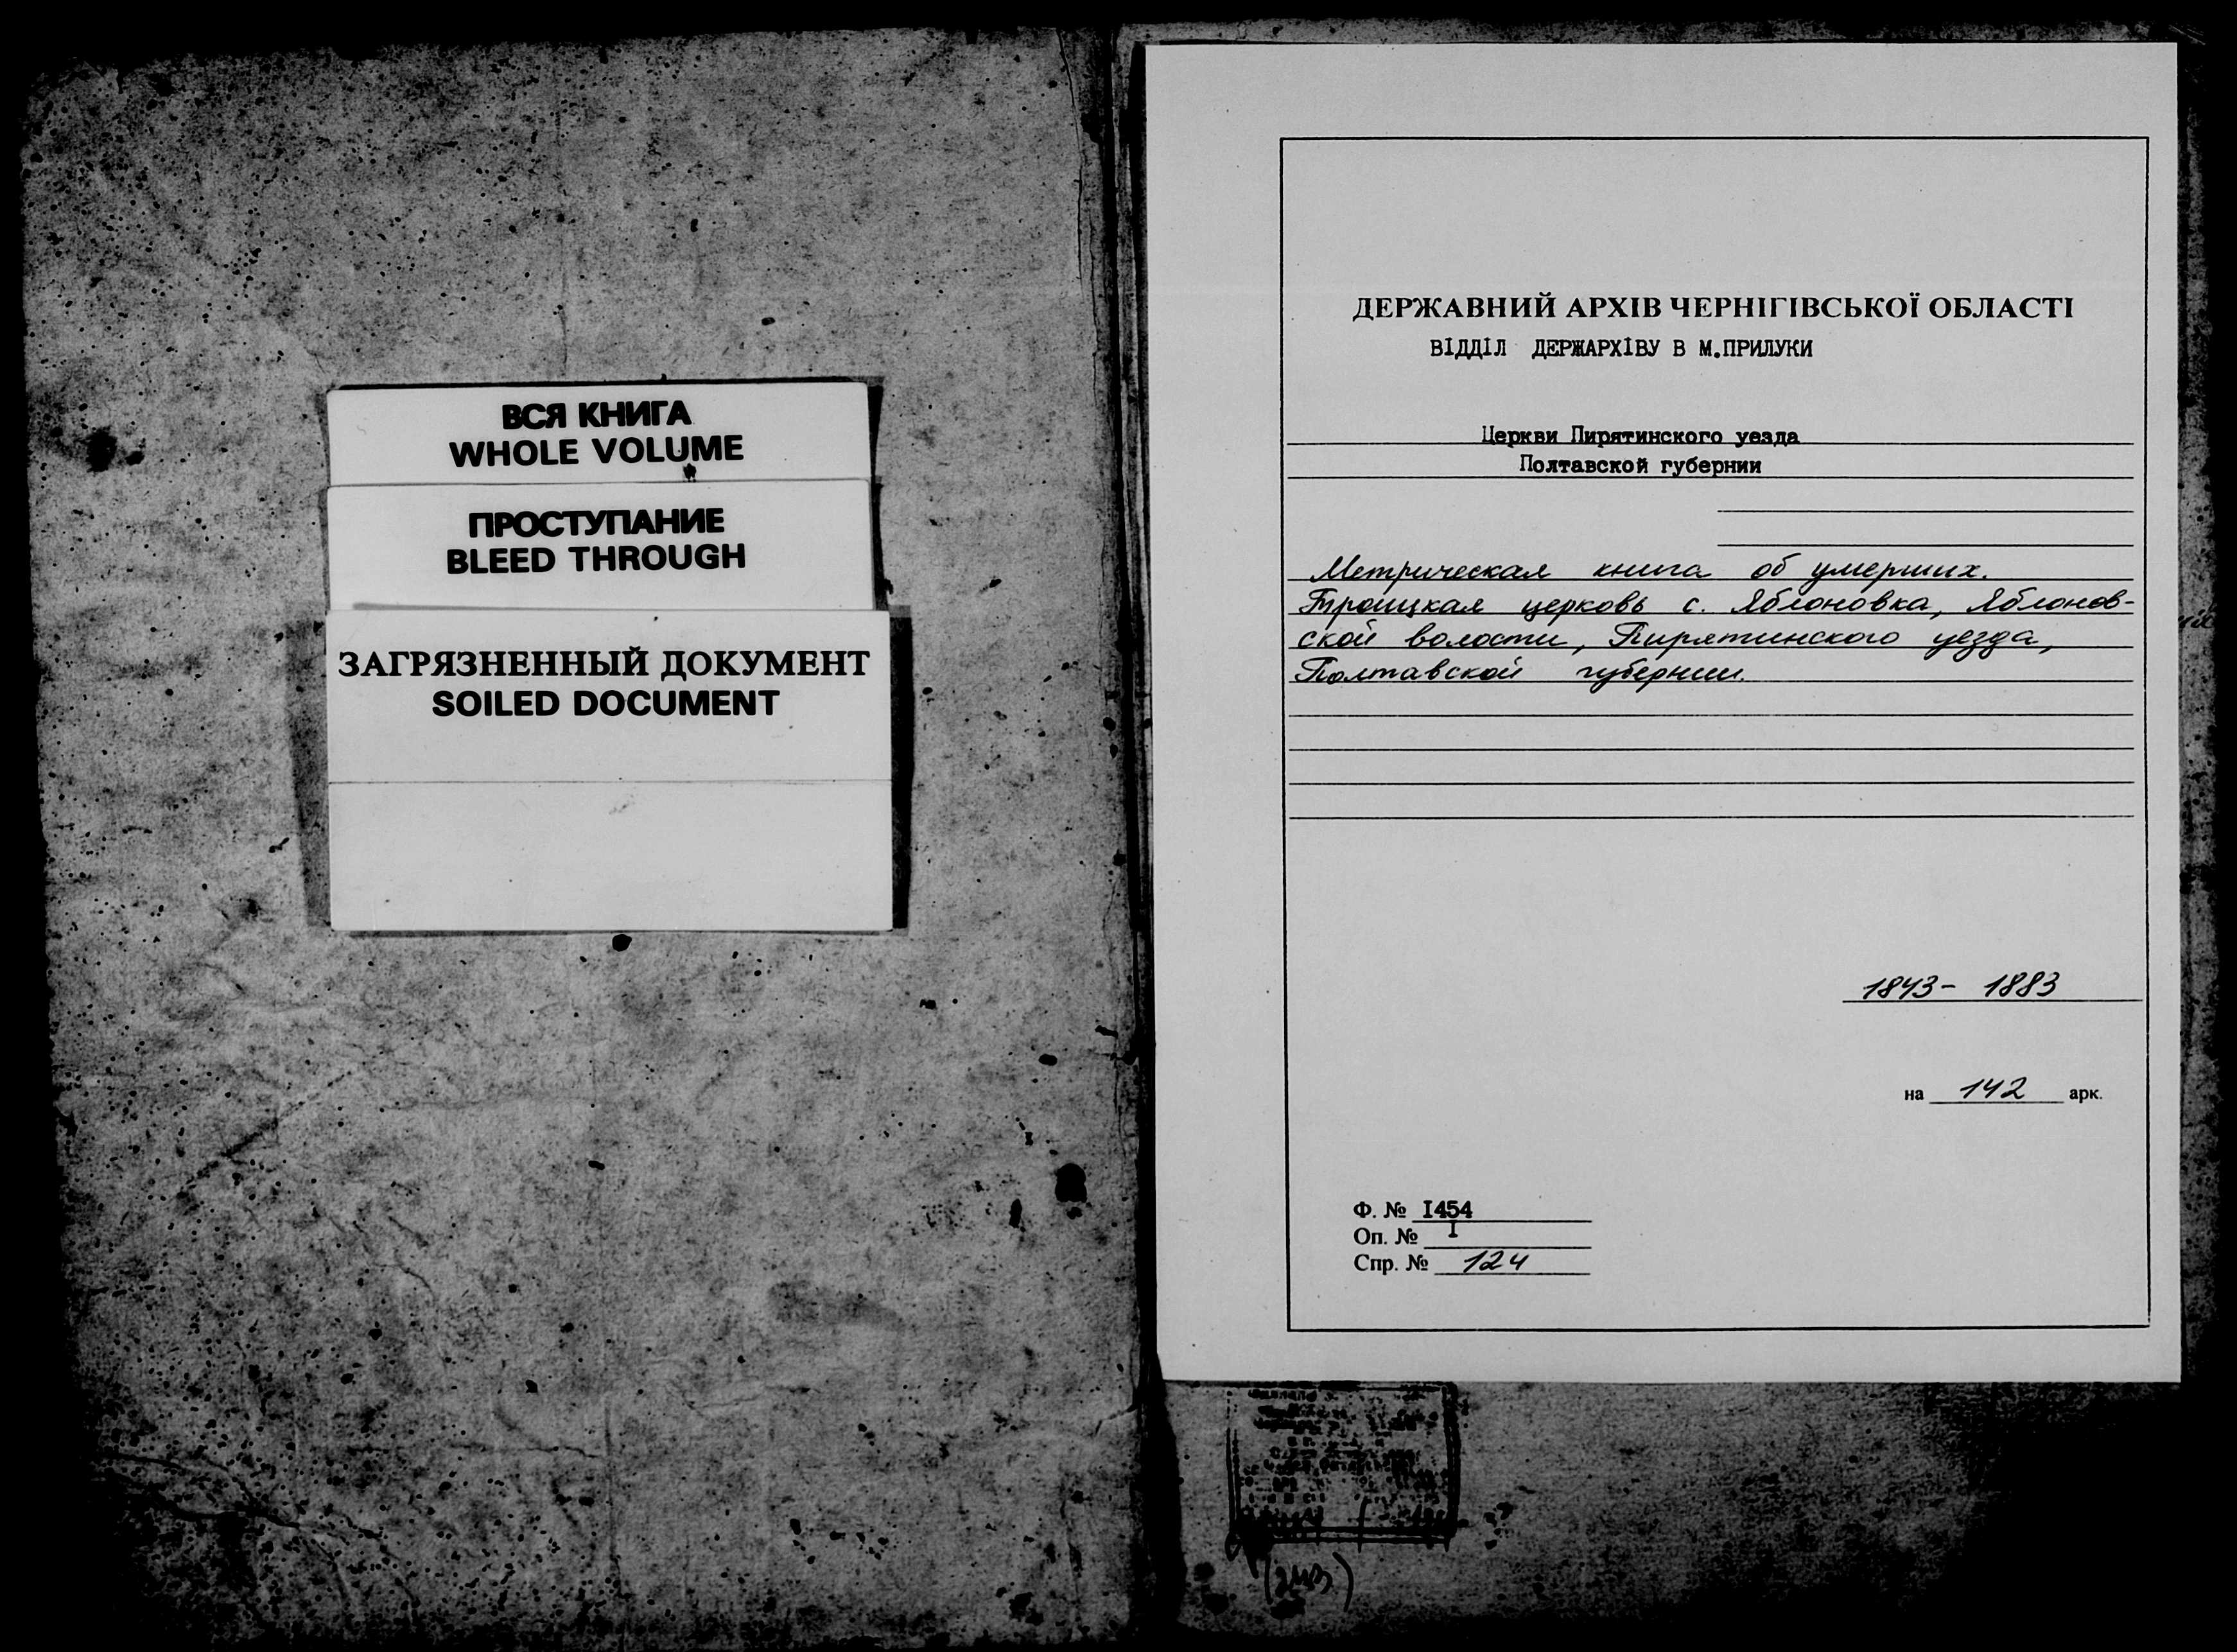 ВСЯ КНИГА
WHOLE VOLUME
ПРОСТУПАНИЕ
BLEED THROUGH
ЗАГРЯЗНЕННЫЙ ДОКУМЕНТ
SOILED DOCUMENT
ДЕРЖАВНИЙ АРХІВ ЧЕРНІГІВСЬКОЇ ОБЛАСТІ
ВІДДІЛ ДЕРЖАРХІВУ В М.ПРИЛУКИ
Церкви Пирятинского уезда
Полтавской губернии
Метрическая книга об умерших.
Троицкая церковь с. Яблоновка, Яблонов-
ской волости, Пирятинского уезда,
Полтавской губернии.
1843- 1883
на 142 арк.
Ф. № I454
Оп. № I
Спр. № 124